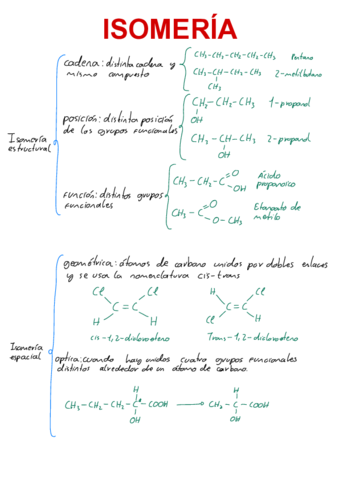 ISOMERÍA
Isomería
estructural
cadena: distinta cadena y
mismo compuesto
CH₃-CH₂-CH₂-CH₂-CH₃ Pentano
CH₃-CH-CH₂-CH₃ 2-metilbutano
CH₃
posición: distinta posición
de los grupos funcionales
CH₂-CH₂-CH₃ 1-propanol
OH
CH₃-CH-CH₃ 2-propanol
OH
función: distintos grupos
funcionales
CH₃-CH₂-C=O OH Ácido
propanoico
CH₃-C=O O-CH₃ Etanoato de
metilo
Isomería
espacial
geométrica: átomos de carbono unidos por dobles enlaces
y se usa la nomenclatura cis-trans
Cl Cl H Cl
C=C C=C
H H Cl H
cis-1,2-dicloroeteno Trans-1,2-dicloroeteno
optica: cuando hay unidos cuatro grupos funcionales
distintos alrededor de un átomo de carbono.
H H
CH₃-CH₂-CH₂-C*-COOH CH₃-C-COOH
OH OH